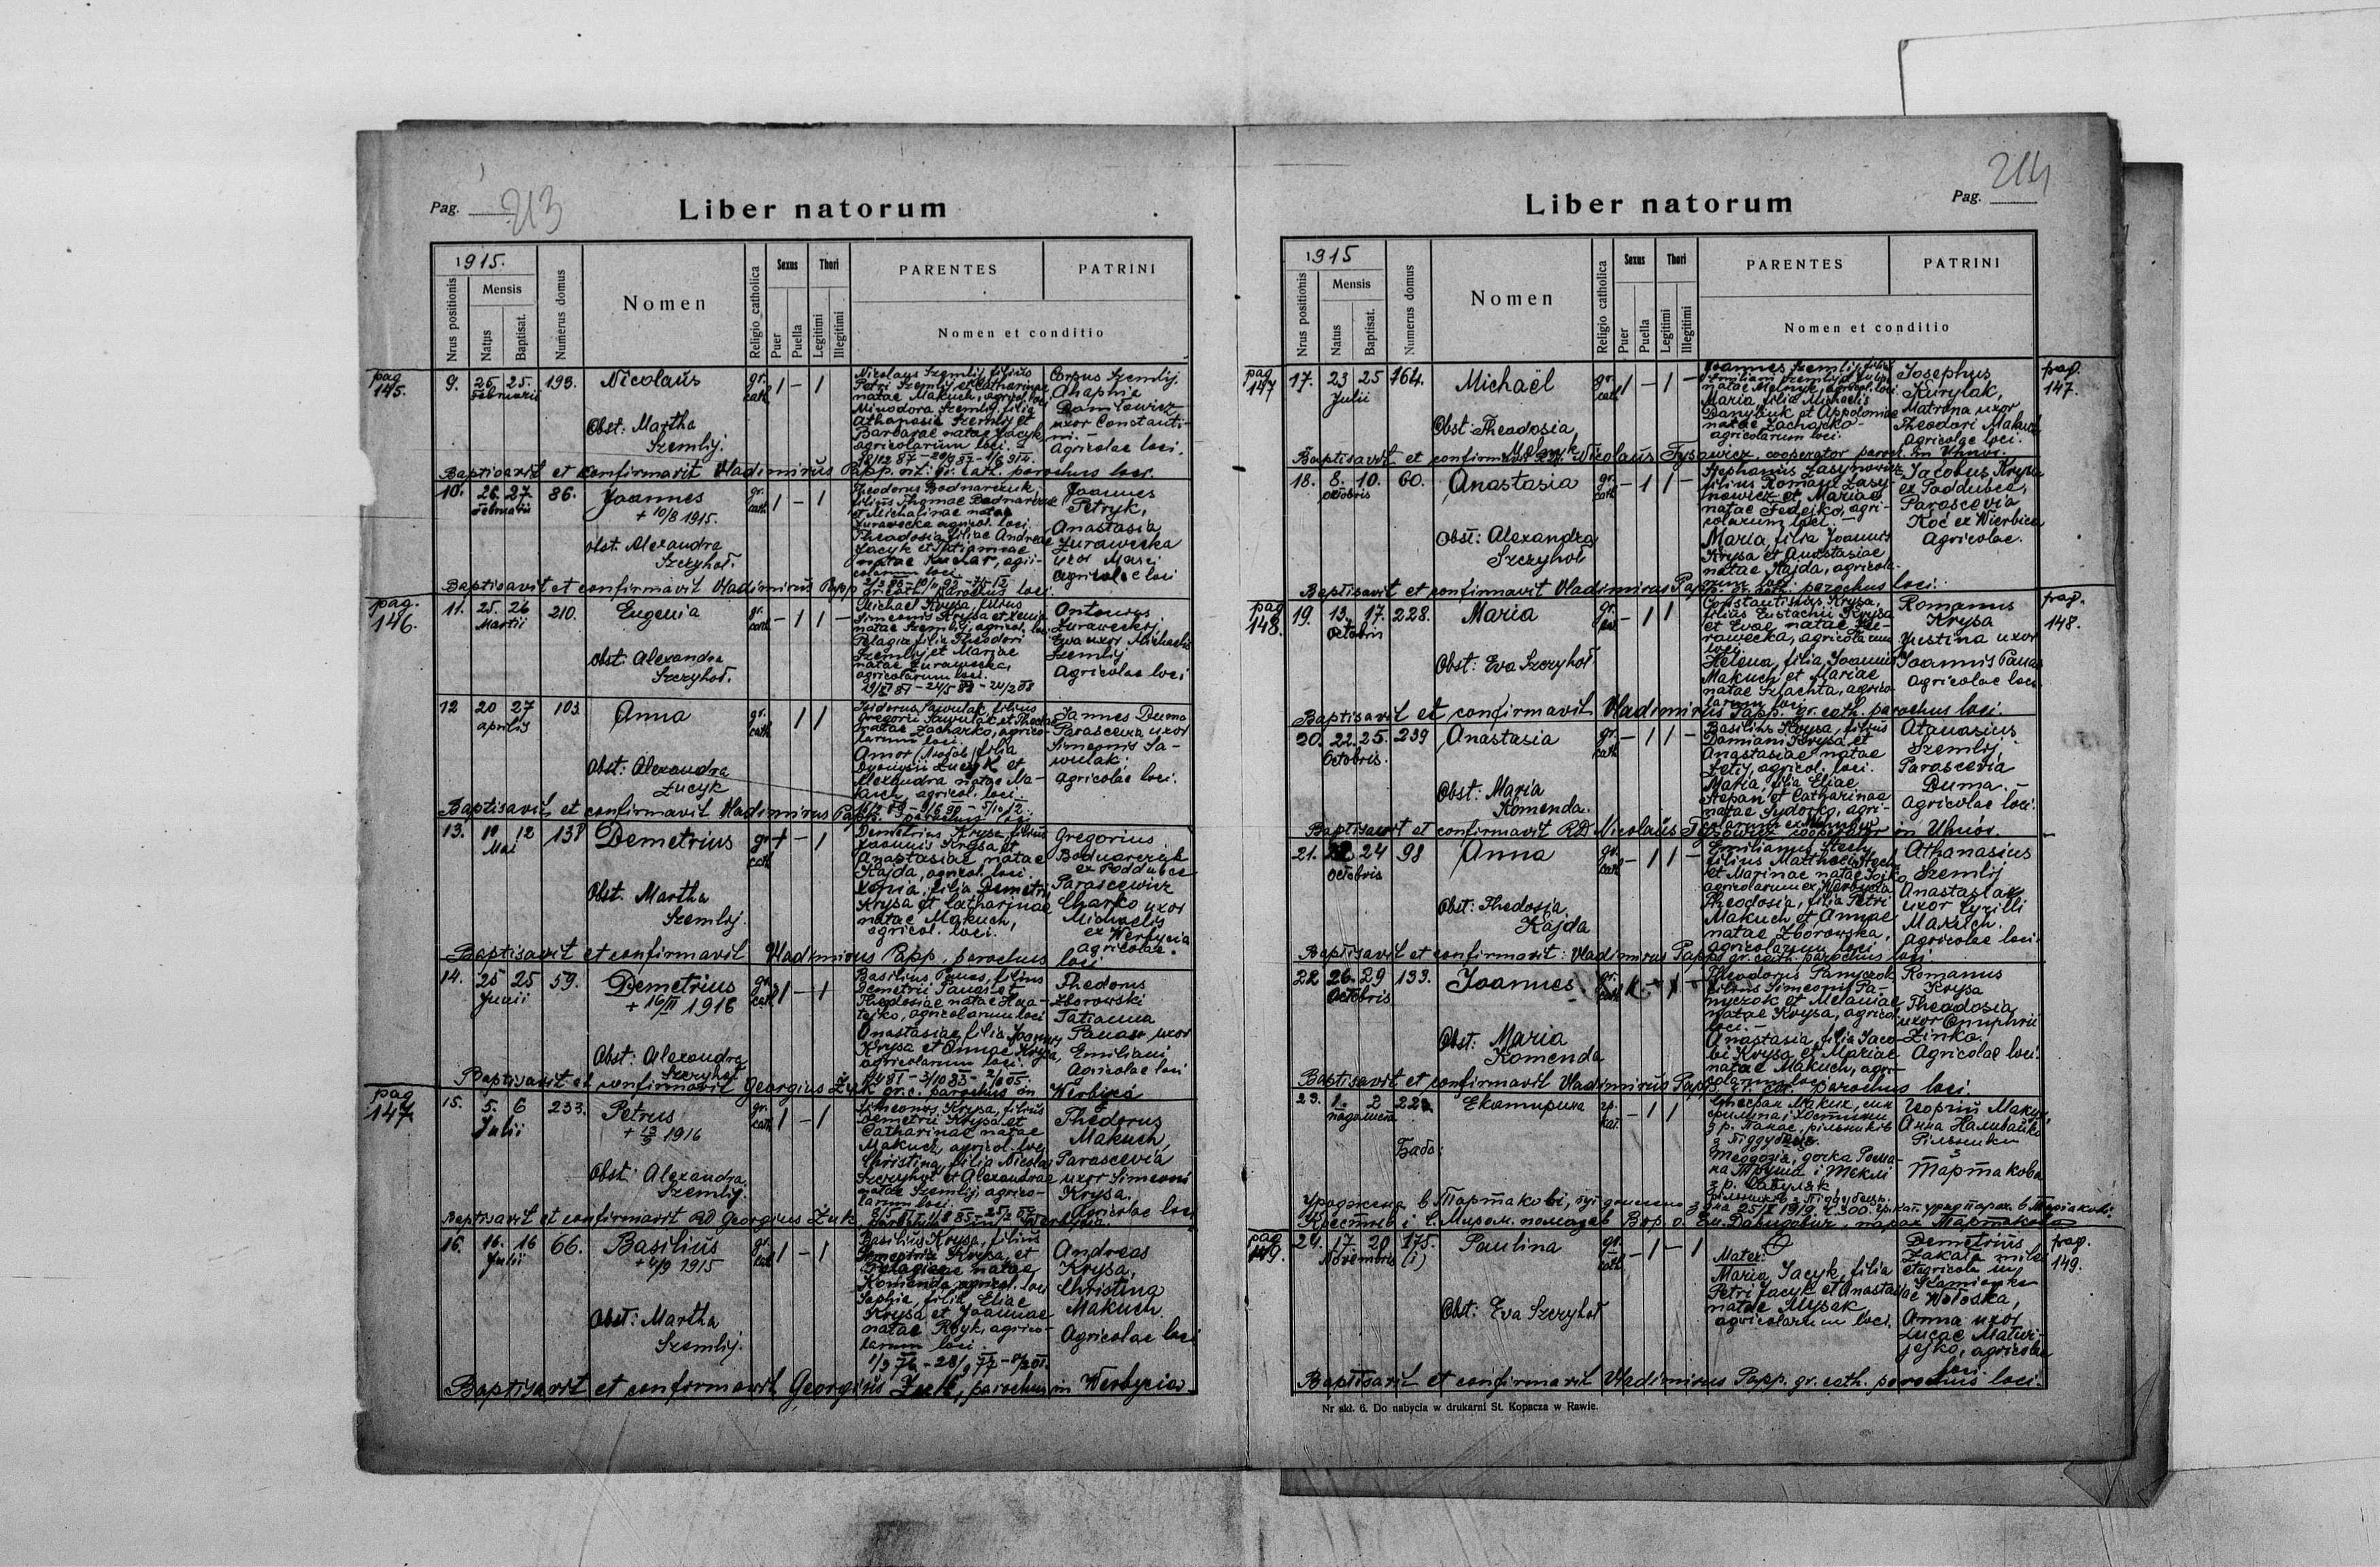 Pag. 213
Liber natorum
1915.
Nrus positionis
Mensis
Natus
Baptisat.
Numerus domus
Nomen
Religio catholica
Sexus
Puer
Puella
Thori
Legitimi
Illegitimi
PARENTES
PATRINI
Nomen et conditio
pag
145.
9. 25. 25. 193. Nicolaus gr. cath. 1 – 1
Februarii
Obst: Martha
Szemlij.
Nicolaus Szemlij, filius
Petri Szemlij et Catharinae
natae Makuch, agricol. loci
Minodora Szemlij, filia
Athanasii Szemlij et
Barbarae natae Jacyk
agricolarum loci.
Szemlij.
uxor Constanti-
ni. –
Agricolae loci.
Baptisavit et confirmavit Vladimirus Papp. gr. cath. parochus loci.
10. 26. 27. 86. Joannes gr. cath. 1 – 1
Februarii
+ 10/8 1915.
Obst. Alexandra
Szczyhoł.
Theodorus Bodnarczuk,
filius Thomae Bodnarczuk
et Michalinae natae
Żurawecka agricol. loci.
Theodosia, filiae Andreae
natae Kuchar, agri-
colarum loci
Joannes
Petryk,
Anastasia
Żurawecka
uxor Marci
agricolae loci
Baptisavit et confirmavit Vladimirus Papp gr. cath. parochus loci.
pag.
146.
11. 25. 26 210. Eugenia gr. cath. – 1 1 –
Martii
Obst: Alexandra
Szczyhoł.
Michael Krysa, filius
Simeonis Krysa et
natae Szemlij, agricol. loci
Pelagia filia Theodori
Szemlij et Mariae
natae Żurawecka,
agricolarum loci.
Antonius
Żuraweckij.
Ewa uxor Michaelis
Szemlij
Agricolae loci
12 20 27 103 Anna gr. cath. 1 1
aprilis
Obst: Alexandra
Łucyk
Isidorus Sawulak, filius
Gregorii Sawulak et Theclae
natae Zacharko, agrico-
larum loci.
filia
Łucyk et
Alexandra natae Ma-
kuch agricol. loci.
Joannes Duma
Parascewa uxor
Simeonis Sa-
wulak.
Agricolae loci.
Baptisavit et confirmavit Vladimirus Papp. parochus loci
13. 10 12 138 Demetrius gr. cath. 1 – 1
Mai
Obst. Martha
Szemlij.
Demetrius Krysa, filius
Joannis Krysa et
Anastasiae natae
Kajda, agricol. loci.
Xenia, filia Demetrii
Krysa et Catharinae
natae Makuch,
agricol. loci.
Gregorius
Bodnarczuk
ex Poddubce
Parascewia
Charko uxor
Michaelis
ex Werbycia
agricolae.
Baptisavit et confirmavit Vladimirus Papp, parochus loci
14. 25 25 59. Demetrius gr. cath. 1 – 1
Junii
+ 16/II 1916
Obst: Alexandra
Szczyhoł
Basilius Panas, filius
Demetrii Panas et
Theodosiae natae
agricolarum loci
Anastasiae, filia Joannis
Krysa et Annae Krysa,
agricolarum loci.
Thedorus
Zborowski
Tatianna
Panas uxor
Emiliani
Agricolae loci
Baptisavit et confirmavit Georgius Żuk gr. c. parochus in Werbycia
pag
147
15. 5. 6 233. Petrus gr. cath. 1 – 1
Julii
+ 13/9 1916
Obst. Alexandra
Szemlij.
Simeonis Krysa, filius
Demetrii Krysa et
Catharinae natae
Makuch, agricol. loci
Christina, filia Nicolai
Szczyhoł et Alexandrae
natae Szemlij, agrico-
larum loci.
Thedorus
Makuch,
Parascevia
uxor Simeoni
Krysa.
Agricolae loci
Baptisavit et confirmavit RD Georgius Żuk, parochus in Werbycia.
16. 16. 16 66. Basilius gr. cath. 1 – 1
Julii
+ 4/9 1915
Obst: Martha
Szemlij.
Basilius Krysa, filius
Krysa, et
Pelagieae natae
Komenda agricol. loci
Sophia, filia Eliae
Krysa et Joannae
natae Kbyk, agrico-
larum loci.
Andreas
Krysa,
Christina
Makuch.
Agricolae loci
Baptisavit et confirmavit Georgius Żuk, parochus in Werbycia.
Pag. 214
Liber natorum
1915
Nrus positionis
Mensis
Natus
Baptisat.
Numerus domus
Nomen
Religio catholica
Sexus
Puer
Puella
Thori
Legitimi
Illegitimi
PARENTES
PATRINI
Nomen et conditio
pag
147
17. 23 25 164. Michaël gr. cath. 1 – 1 –
Julii
Obst: Theodosia
Melnyk
Joannes Szemlij, filius
Emiliani Szemlij et Juliae
natae Melnyk, agricol. loci.
Maria filia Michaelis
Danyluk et Appoloniae
natae Zacharko –
agricolarum loci.
Josephus
Kurylak,
Matrona uxor
Theodori Makuch
Agricolae loci.
pag.
147.
Baptisavit et confirmavit RD. Nicolaus Tysowicz, cooperator paroch. in Uhnów.
18. 8. 10. 60. Anastasia gr. cath. – 1 1 –
Octobris
Obst: Alexandra
Szczyhoł
Stephanus Zasynowicz
filius Romani Zasy-
nowicz et Mariae
natae Fedejko, agri-
colarum loci. –
Maria, filia Joannis
Krysa et Anastasiae
natae Kajda, agricola-
rum loci.
Jacobus Krysa
ex Poddubce,
Parascevia
Koć ex Wierbica
Agricolae.
Baptisavit et confirmavit Vladimirus Papp. gr. cath. parochus loci.
pag
148.
19. 13. 17. 228. Maria gr. cath. – 1 1
Octobris
Obst: Eva Szczyhoł
Constantinus Krysa,
filius Eustachii Krysa
et Evae natae Żu-
rawecka, agricolarum
loci.
Helena, filia Joannis
Makuch et Mariae
natae Szlachta, agrico-
larum loci
Romanus
Krysa
Justina uxor
Joannis Panas
Agricolae loci.
pag.
148.
Baptisavit et confirmavit Vladimirus Papp. gr. cath. parochus loci.
20. 22. 25. 239 Anastasia gr. cath. – 1 1 –
Octobris.
Obst: Maria
Komenda.
Basilius Krysa, filius
Damiani Krysa et
Anastasiae natae
agricol. loci.
Maria, filia Eliae
Stepan et Catharinae
natae Sydorko, agri-
colarum ex
Atanasius
Szemlij.
Parascevia
Duma. –
Agricolae loci.
Baptisavit et confirmavit RD Nicolaus Tysowicz cooperator in Uhnów.
21. 24 98 Anna gr. cath. – 1 1 –
Octobris
Obst: Thedosia
Kajda
Emilianus Stech,
filius Matthaei Stech
et Marinae natae
agricolarum ex Werbycia
Theodosia, filia Petri
Makuch et Annae
natae Zborowska,
agricolarum loci
Athanasius
Szemlij
Anastasia
uxor Cyrilli
Makuch.
Agricolae loci.
Baptisavit et confirmavit: Vladimirus Papp gr. cath. parochus loci.
22 26. 29 133. Joannes gr. cath. 1 – 1 –
Octobris
Obst: Maria
Komenda
Theodorus Panyczok
filius Simeonis Pa-
nyczok et Melaniae
natae Krysa, agricol.
loci. –
Anastasia, filia Jaco-
bi Krysa et Mariae
natae Makuch, agri-
colarum loci
Romanus
Krysa
Theodosia
uxor Onuphrii
Zinko.
Agricolae loci.
Baptisavit et confirmavit Vladimirus Papp. gr. cat. parochus loci.
23. 1. 2 Екатирина гр. кат. – 1 1
падолиста
Баба:
Стефан Макух, син
з р. Панас, рільників
з Піддубець.
Теодозія, дочка Рома-
на Труша і Теклі
рільників з Піддубець.
Георгій Макух,
Анна Наливайко
Рільники
з
Тартакова
Уроджена в Тартакові,
Крестив і с. Миром. помазав Впр. о. Ем. Давидович, парох Тартакова
pag
149.
24. 17 20 175. Paulina gr. cath. – 1 – 1
Novembris (i)
Obst: Eva Szczyhoł
Mater:
Maria Jacyk, filia
Petri Jacyk et Anastasiae
natae Mysak,
agricolarum loci.
Demetrius
Zakała miles
et agricola in
Kamionka
Wołoska,
Anna uxor
Lucae Matwi-
jejko, agricolae
loci.
pag.
149.
Baptisavit et confirmavit Vladimirus Papp. gr. cath. parochus loci.
Nr skł. 6. Do nabycia w drukarni St. Kopacza w Rawie.